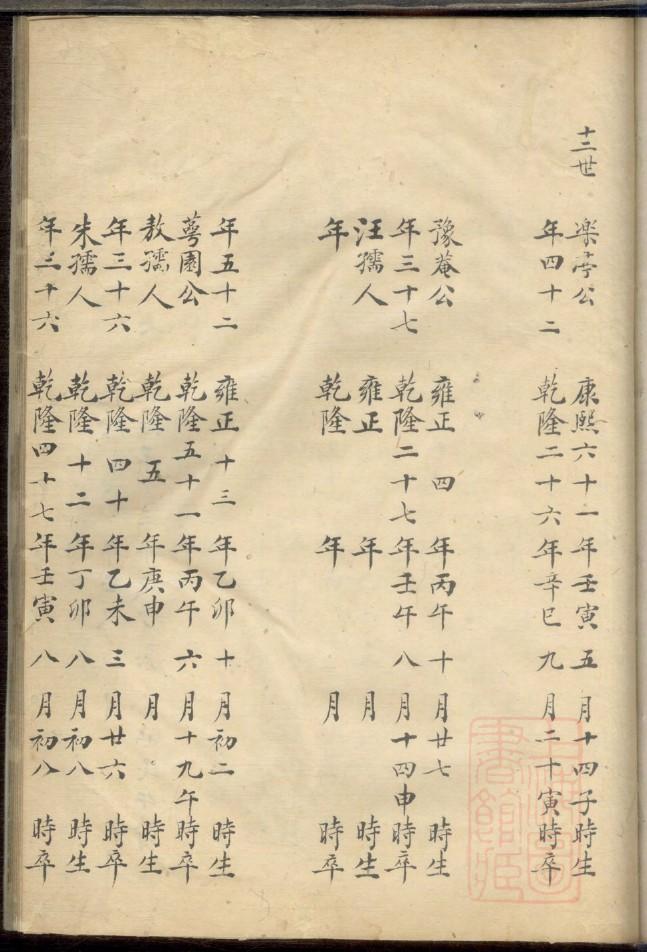 十二世
楽亭公 康熙六十一年壬寅五月十四子時生
年四十二 乾隆二十六年辛巳九月二十寅時卒
豫菴公 雍正四年丙午十月廿七時生
年三十七 乾隆二十七年壬午八月十四申時卒
汪孺人 雍正 年 月 時生
年 乾隆 年 月 時卒
年五十二 雍正十三年乙卯十月初二時生
萼園公 乾隆五十一年丙午六月十九午時卒
敖孺人 乾隆五年庚申 月 時生
年三十六 乾隆四十年乙未三月廿六時卒
朱孺人 乾隆十二年丁卯八月初八時生
年三十六 乾隆四十七年壬寅八月初八時卒